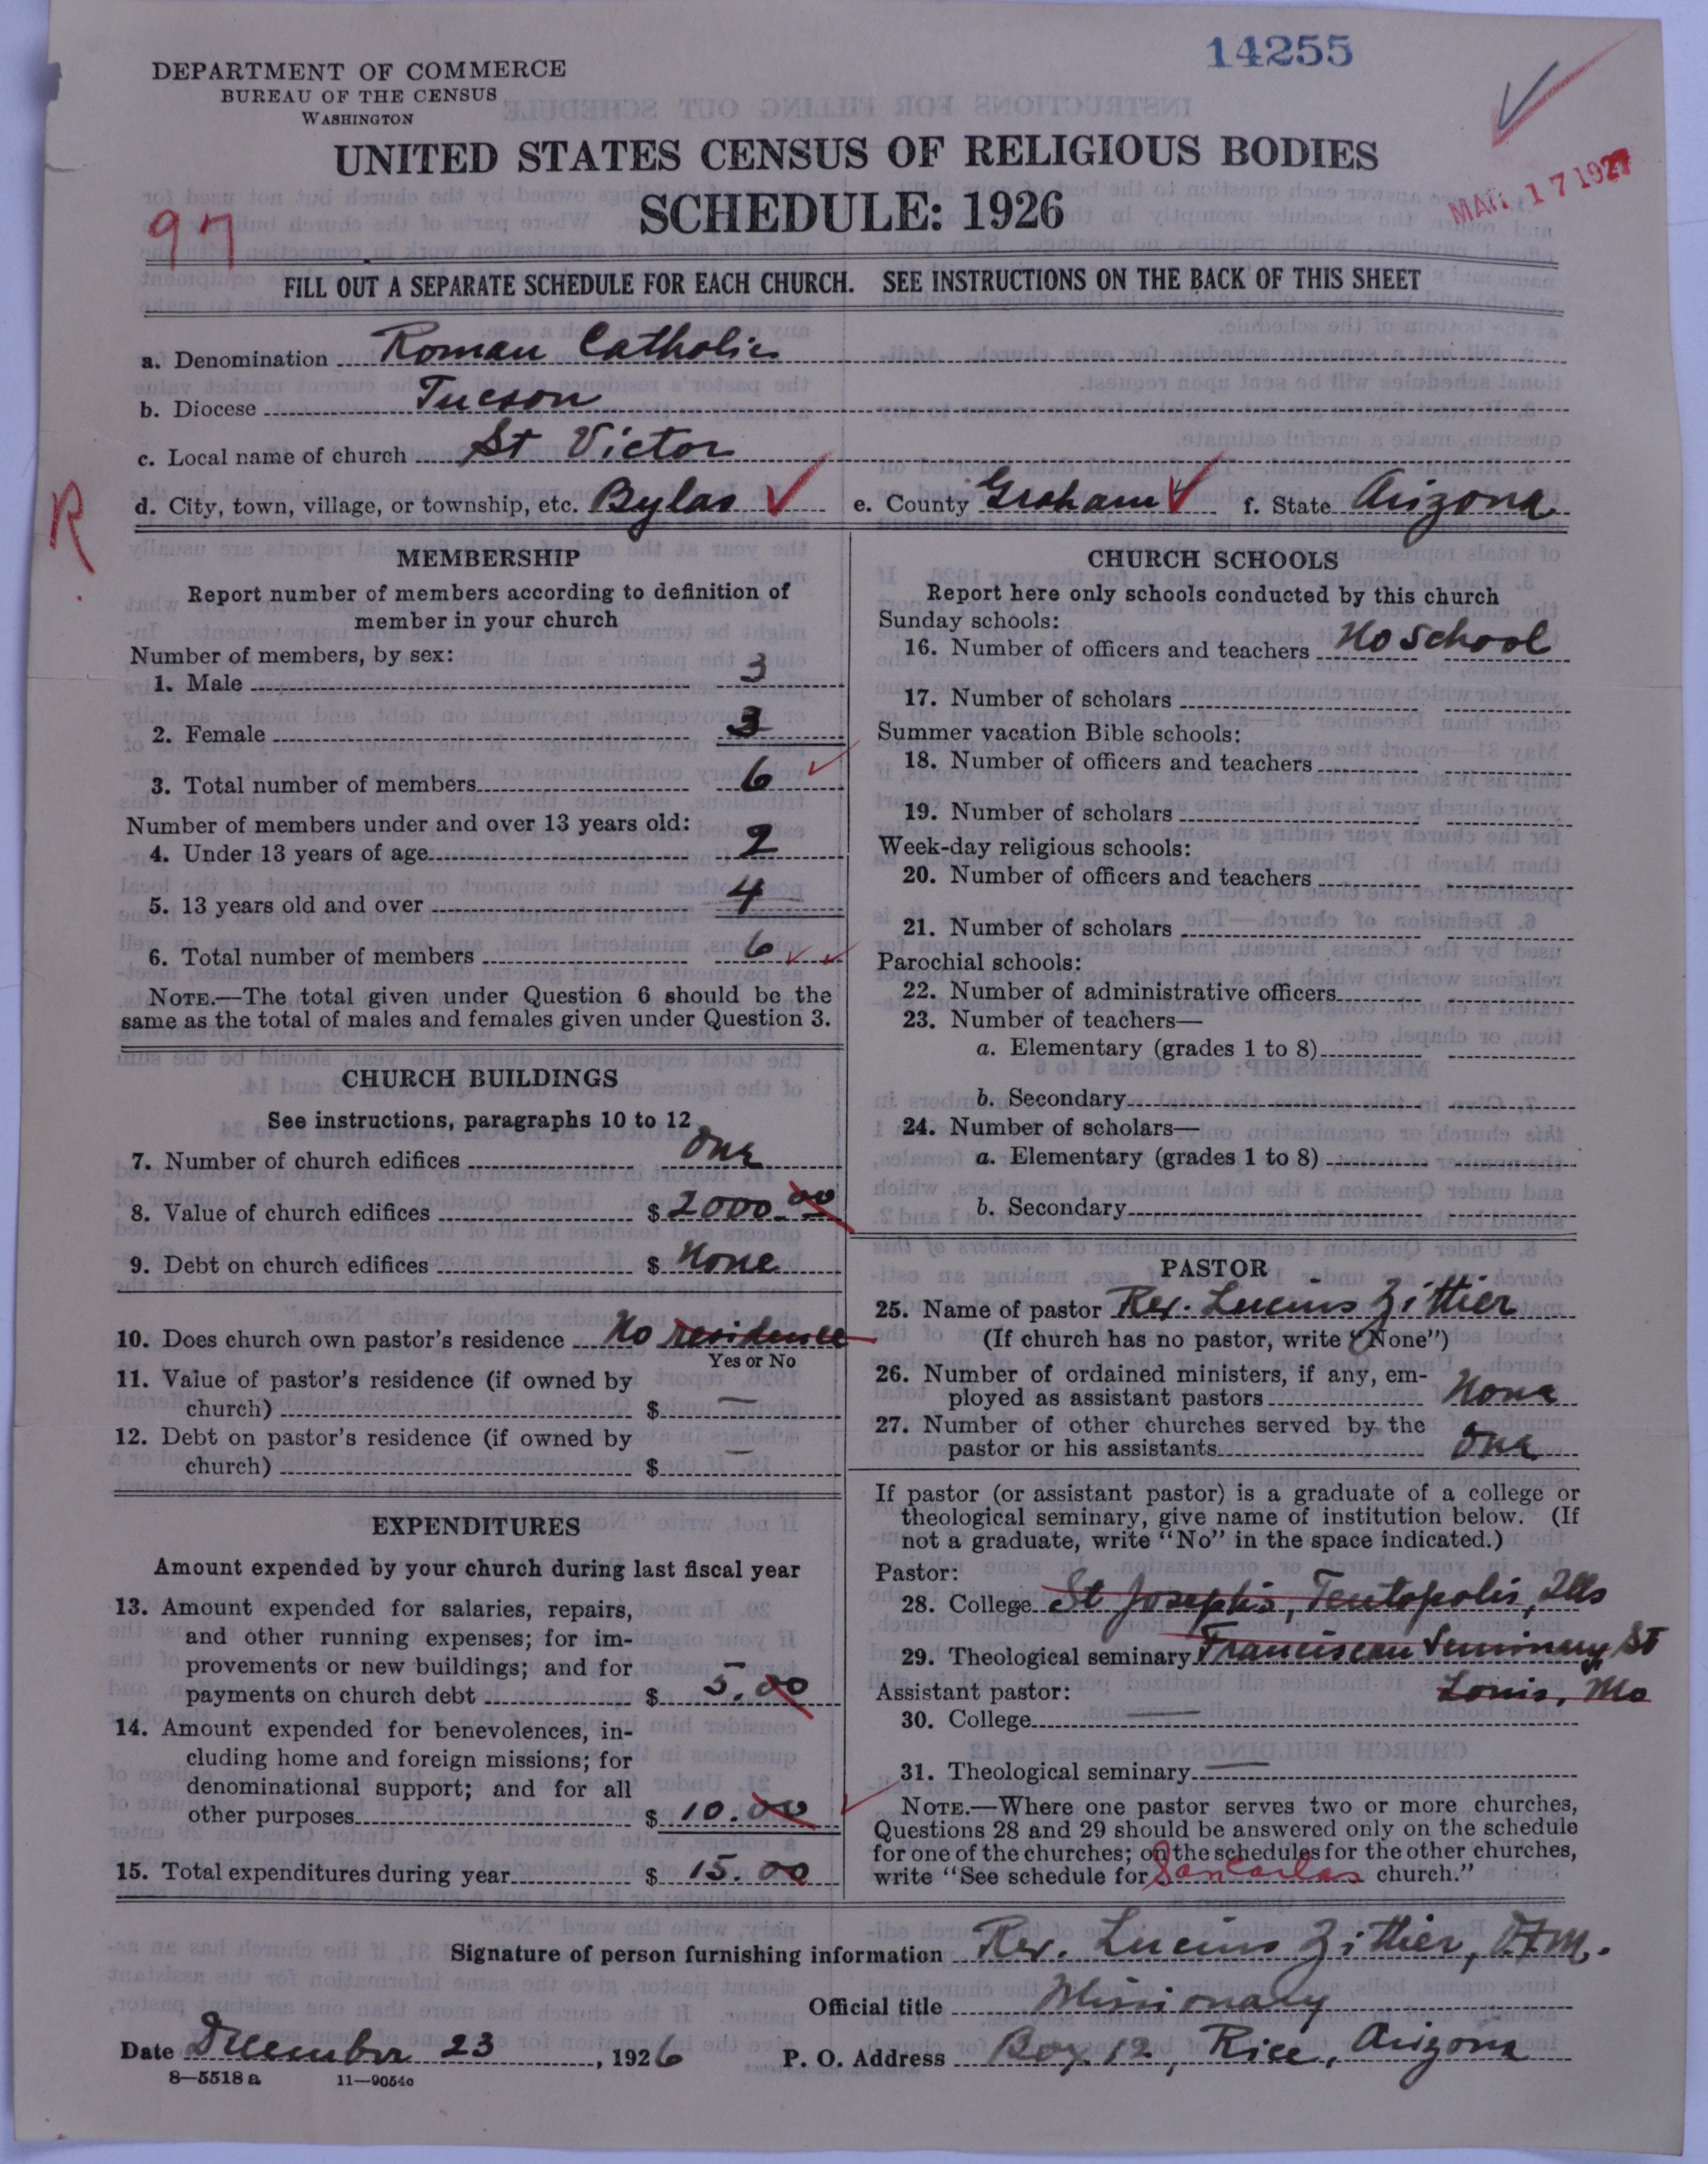 14255
DEPARTMENT OF COMMERCE
BUREAU OF THE CENSUS
WASHINGTON
UNITED STATES CENSUS OF RELIGIOUS BODIES
SCHEDULE: 1926
MAR 17 1927
97
FILL OUT A SEPARATE SCHEDULE FOR EACH CHURCH. SEE INSTRUCTIONS ON THE BACK OF THIS SHEET
a. Denomination Roman Catholic
b. Diocese Tucson
c. Local name of church St Victor
R
d. City, town, village, or township, etc. Bylas e. County Graham f. State Arizona
MEMBERSHIP
Report number of members according to definition of
member in your church
Number of members, by sex:
1. Male 3
2. Female 3
3. Total number of members 6
Number of members under and over 13 years old:
4. Under 13 years of age 2
5. 13 years old and over 4
6. Total number of members 6
NOTE.—The total given under Question 6 should be the
same as the total of males and females given under Question 3.
CHURCH BUILDINGS
See instructions, paragraphs 10 to 12
7. Number of church edifices One
8. Value of church edifices $ 2000.00
9. Debt on church edifices $ None
10. Does church own pastor's residence No residence
Yes or No
11. Value of pastor's residence (if owned by
church) $ —
12. Debt on pastor's residence (if owned by
church) $ —
EXPENDITURES
Amount expended by your church during last fiscal year
13. Amount expended for salaries, repairs,
and other running expenses; for im-
provements or new buildings; and for
payments on church debt $ 5.00
14. Amount expended for benevolences, in-
cluding home and foreign missions; for
denominational support; and for all
other purposes $ 10.00
15. Total expenditures during year $ 15.00
CHURCH SCHOOLS
Report here only schools conducted by this church
Sunday schools:
16. Number of officers and teachers No School
17. Number of scholars
Summer vacation Bible schools:
18. Number of officers and teachers
19. Number of scholars
Week-day religious schools:
20. Number of officers and teachers
21. Number of scholars
Parochial schools:
22. Number of administrative officers
23. Number of teachers—
a. Elementary (grades 1 to 8)
b. Secondary
24. Number of scholars—
a. Elementary (grades 1 to 8)
b. Secondary
PASTOR
25. Name of pastor Rev. Lucius Zittier
(If church has no pastor, write "None")
26. Number of ordained ministers, if any, em-
ployed as assistant pastors None
27. Number of other churches served by the
pastor or his assistants One
If pastor (or assistant pastor) is a graduate of a college or
theological seminary, give name of institution below. (If
not a graduate, write "No" in the space indicated.)
Pastor:
28. College St Joseph's, Teutopolis, Ills
29. Theological seminary Franciscan Seminary St
Louis, Mo
Assistant pastor:
30. College —
31. Theological seminary —
NOTE.—Where one pastor serves two or more churches,
Questions 28 and 29 should be answered only on the schedule
for one of the churches; on the schedules for the other churches,
write "See schedule for San Carlos church."
Signature of person furnishing information Rev. Lucius Zittier, O.F.M.
Official title Missionary
Date December 23, 1926 P. O. Address Box 12, Rice, Arizona
8—5518 a 11—9054c